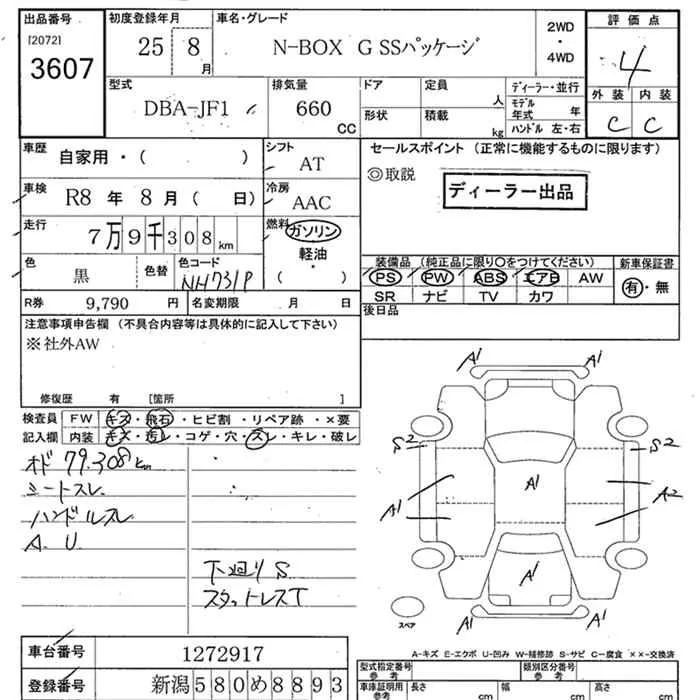 出品番号 初度登録年月 車名・グレード 2WD ・ 4WD 評価点
[2072]
3607 25 8月 N-BOX G SSパッケージ 4
型式 排気量 ドア 定員 人 ディーラー・並行 外装 内装
DBA-JF1 660 CC 形状 積載 kg モデル年式 年 ハンドル 左・右 C C
車歴 自家用・( ) シフト AT セールスポイント (正常に機能するものに限ります)
◎取説 ディーラー出品
車検 R8 年 8 月 ( 日) 冷房 AAC
走行 7万9千308km 燃料 ガソリン 軽油・( )
装備品 (純正品に限り〇をつけてください) 新車保証書
色 黒 色替 色コード NH731P PS PW ABS エアB AW 有・無
SR ナビ TV カワ
R券 9,790 円 名変期限 月 日 後日品
注意事項申告欄 (不具合内容等は具体的に記入して下さい)
※社外AW
修復歴 有 [箇所 ]
検査員 FW キズ・飛石・ヒビ割・リペア跡・×要
記入欄 内装 キズ・汚レ・コゲ・穴・スレ・キレ・破レ
オド 79.308km
シートスレ
ハンドルスレ
A. U
下廻りS
スタットレスT
A1 A1
S2 S2
A1
A1 A2
A1
スペア
A-キズ E-エクボ U-凹み W-補修跡 S-サビ C-腐食 ××-交換済
車台番号 1272917 型式指定番号 参考 類別区分番号 参考
登録番号 新潟580め8893 車庫証明用 参考 長さ cm 幅 cm 高さ cm